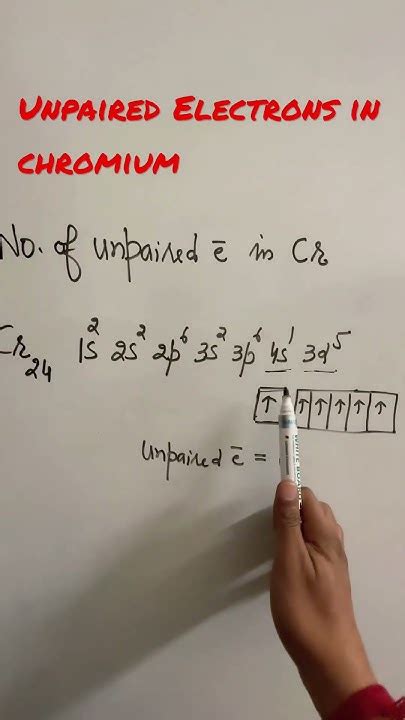 Unpaired Electrons in
chromium
No. of unpaired ē in Cr
Cr₂₄ 1s² 2s² 2p⁶ 3s² 3p⁶ 4s¹ 3d⁵
↑ ↑ ↑ ↑ ↑ ↑
Unpaired ē =